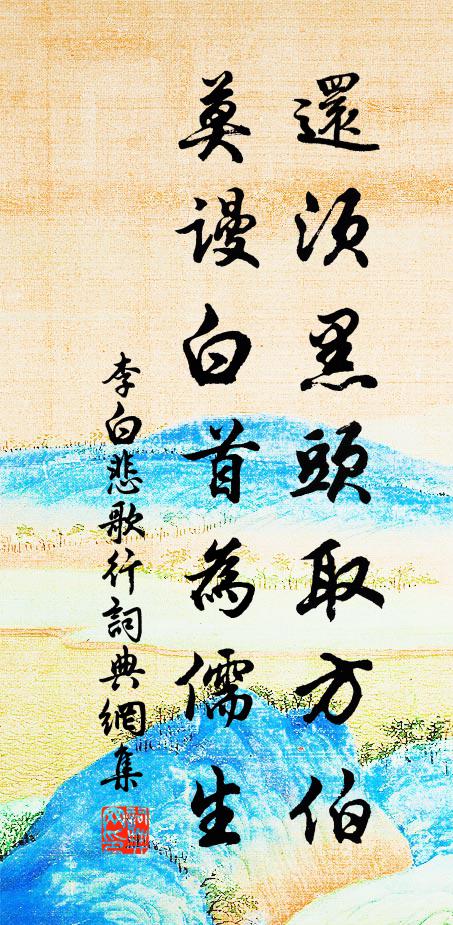 還須黑頭取方伯
莫謾白首為儒生
李白悲歌行詞典網集